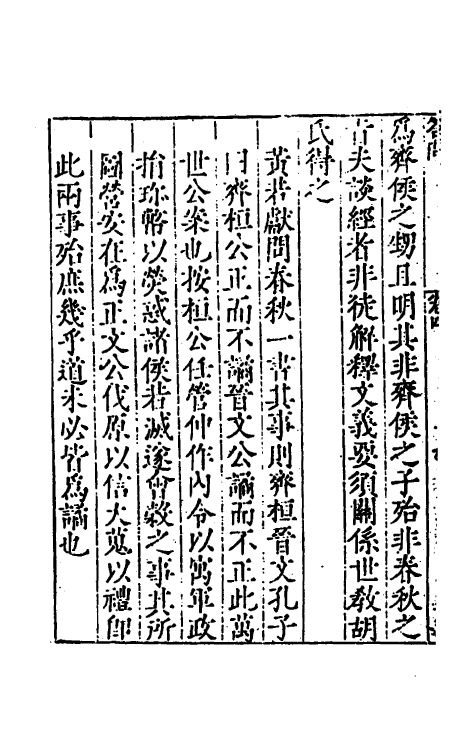 為齊侯之甥且明其非齊侯之子殆非春秋之
旨夫談經者非徒解釋文義要須關係世教胡
氏得之
黃若獻問春秋一書其事則齊桓晉文孔子
曰齊桓公正而不譎晉文公譎而不正此萬
世公案也按桓公任管仲作內令以寓軍政
捐珎幣以熒惑諸侯若滅遂會穀之事其所
圖營安在為正文公伐原以信大蒐以禮即
此兩事殆庶幾乎道未必皆為譎也